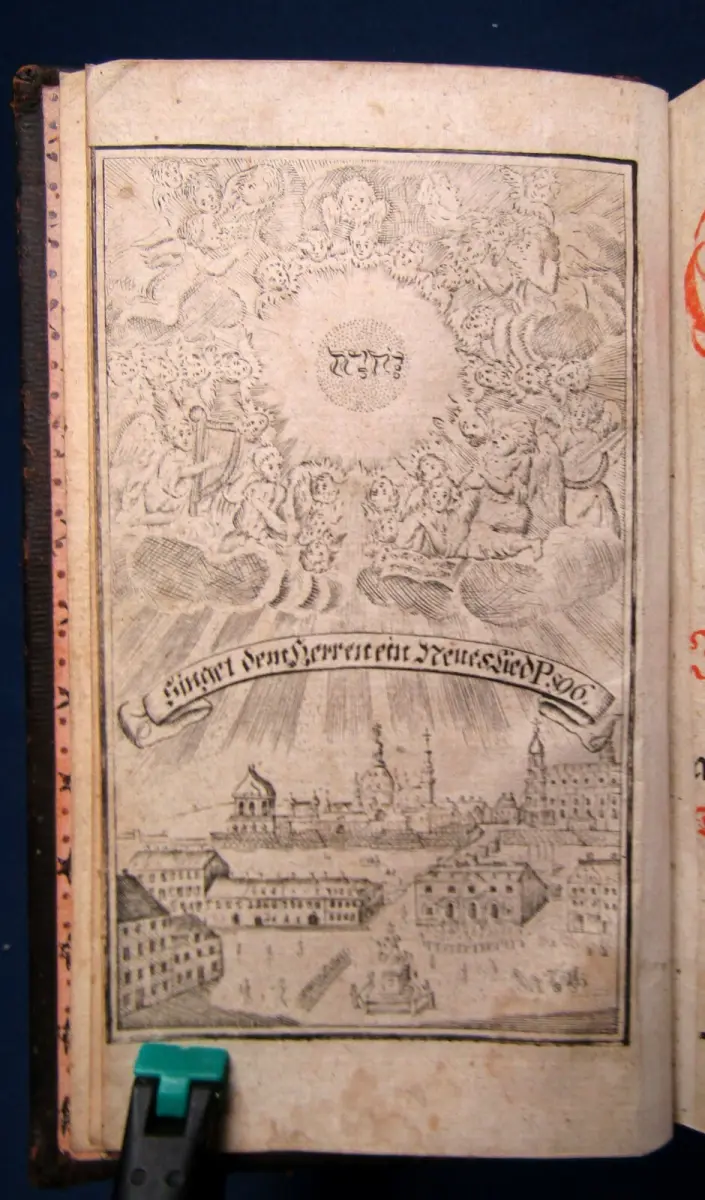 יהוה
Singet dem Herren ein Neues Lied Ps96.